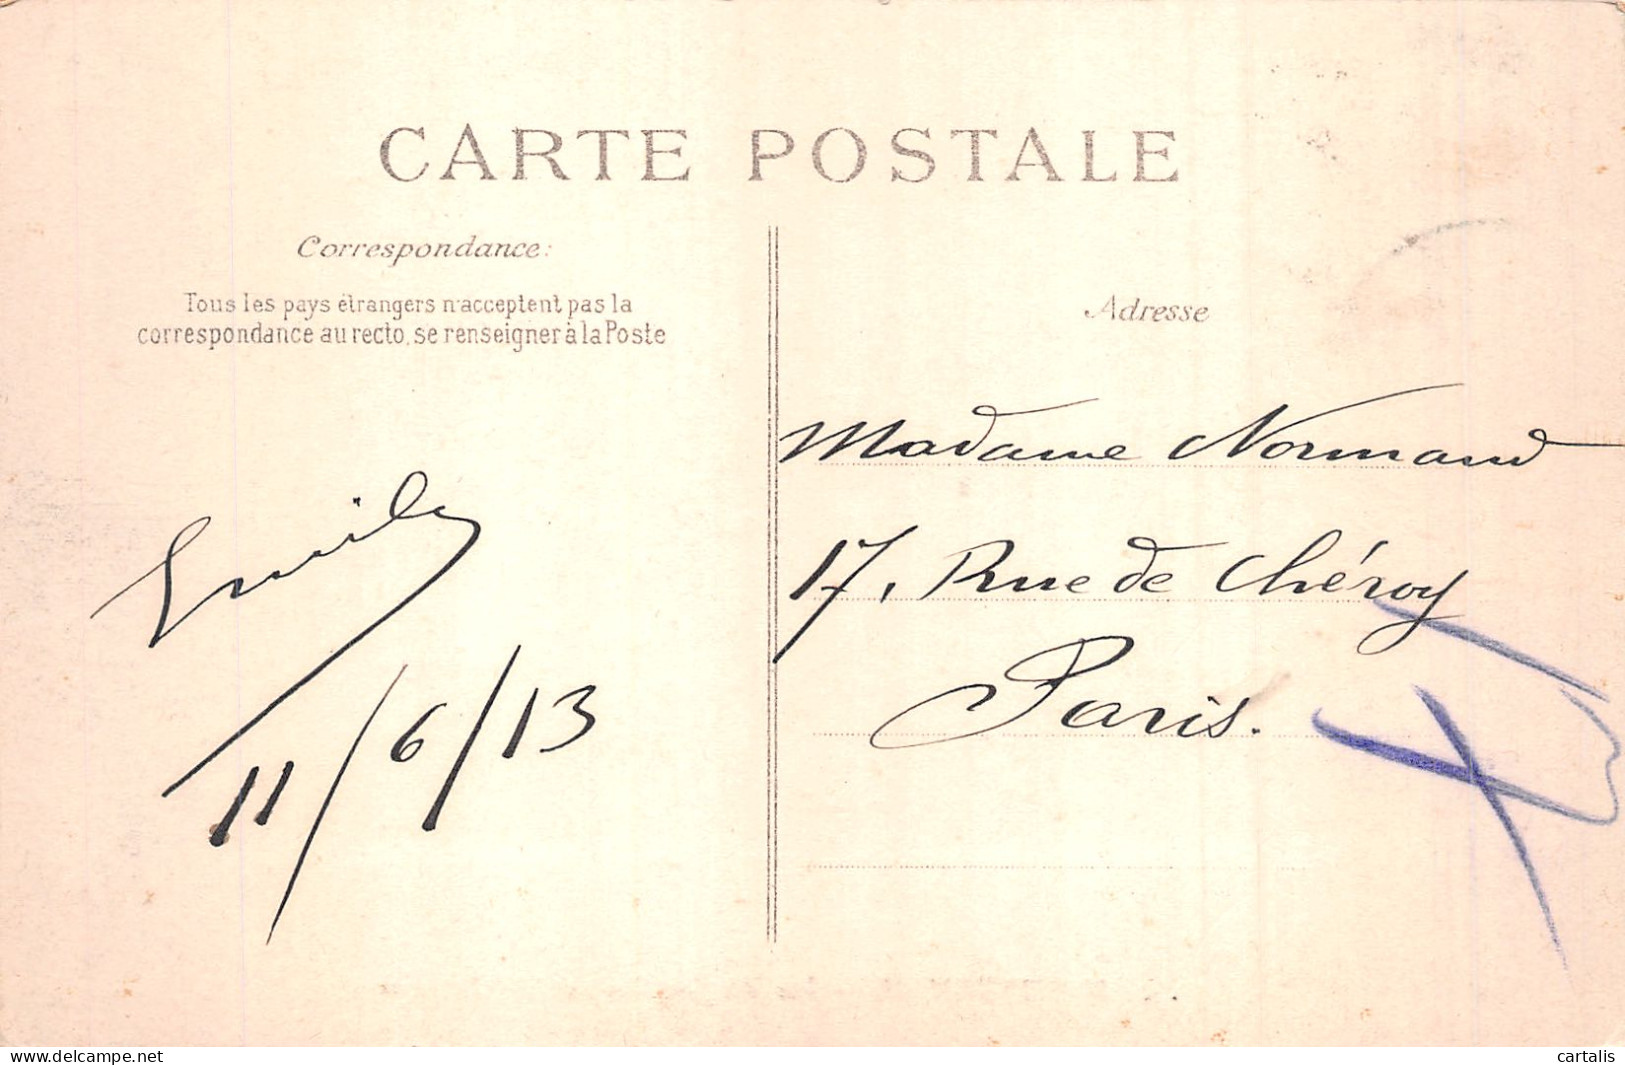 CARTE POSTALE
Correspondance:
Tous les pays étrangers n'acceptent pas la
correspondance au recto, se renseigner à la Poste
Emily
11/6/13
Adresse
Madame Normand
17, Rue de Chéroy
Paris.
www.delcampe.net
cartalis